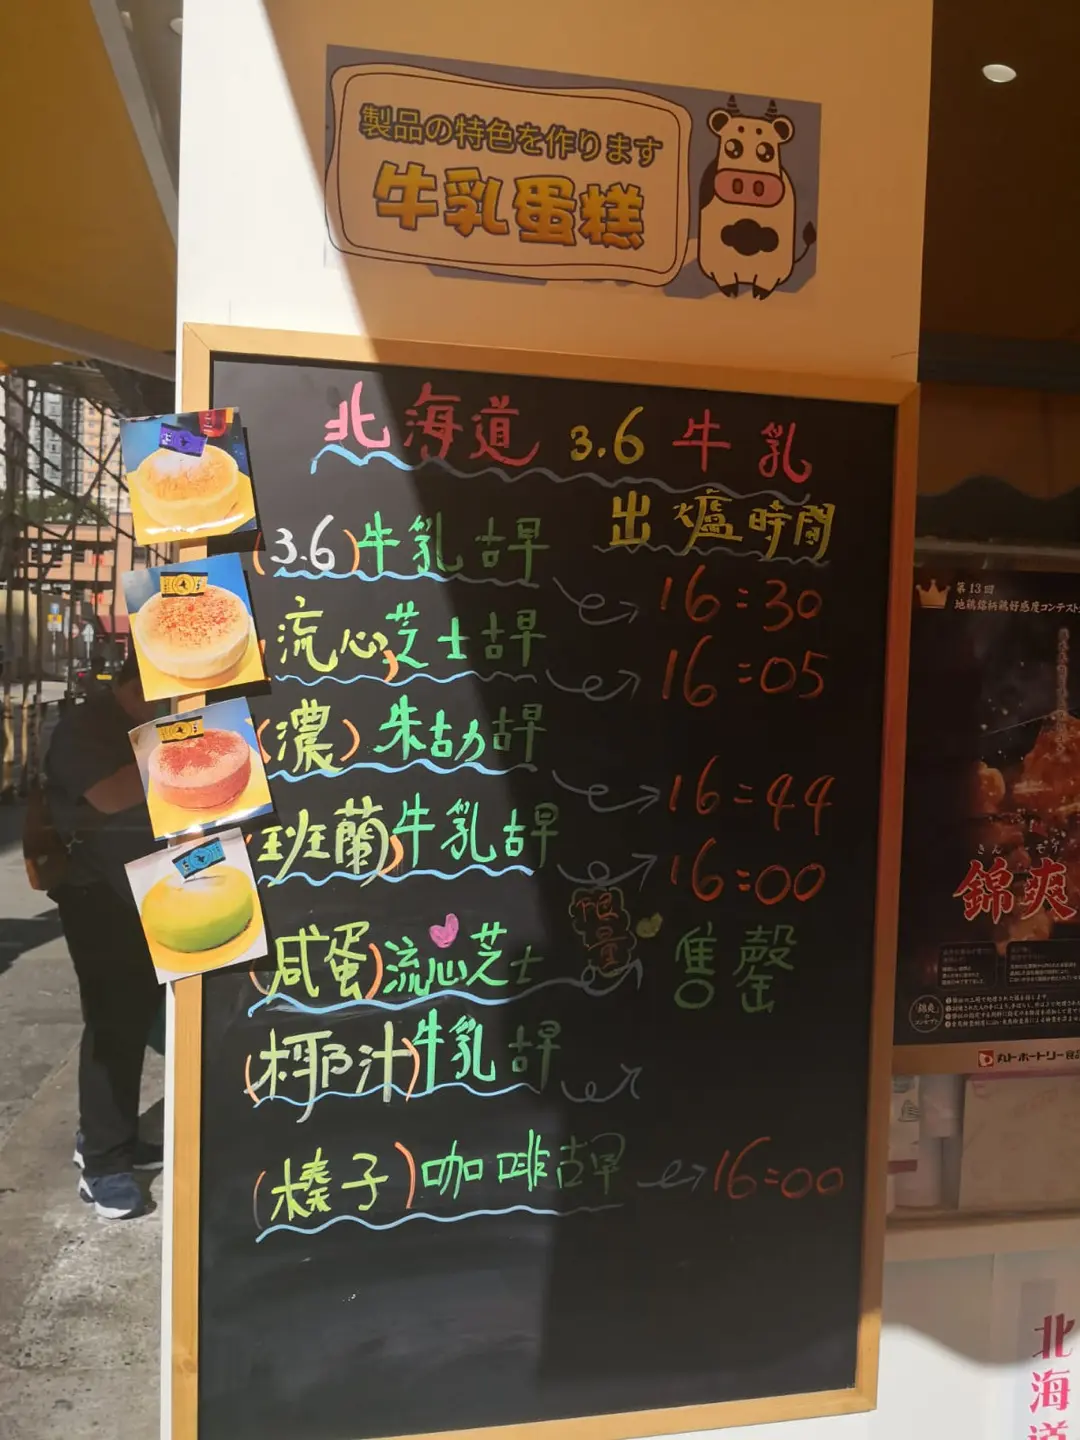 製品の特色を作ります
牛乳蛋糕
北海道 3.6 牛乳
出爐時間
(3.6)牛乳古早 16:30
流心芝士古早 16:05
(濃)朱古力古早 16:44
(班蘭)牛乳古早 16:00
(咸蛋)流心芝士 限量 售罄
(椰汁)牛乳古早
(榛子)咖啡古早 16:00
第13回
地鶏銘柄鶏好感度コンテスト
錦爽
丸トポートリー食品
北海道